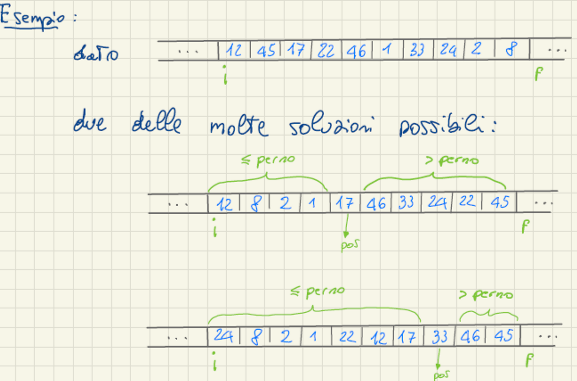 Esempio:
dato ... 12 45 17 22 46 1 33 24 2 8 ...
i f
due delle molte soluzioni possibili:
≤ perno > perno
... 12 8 2 1 17 46 33 24 22 45 ...
i pos f
≤ perno > perno
... 24 8 2 1 22 12 17 33 46 45 ...
i pos f